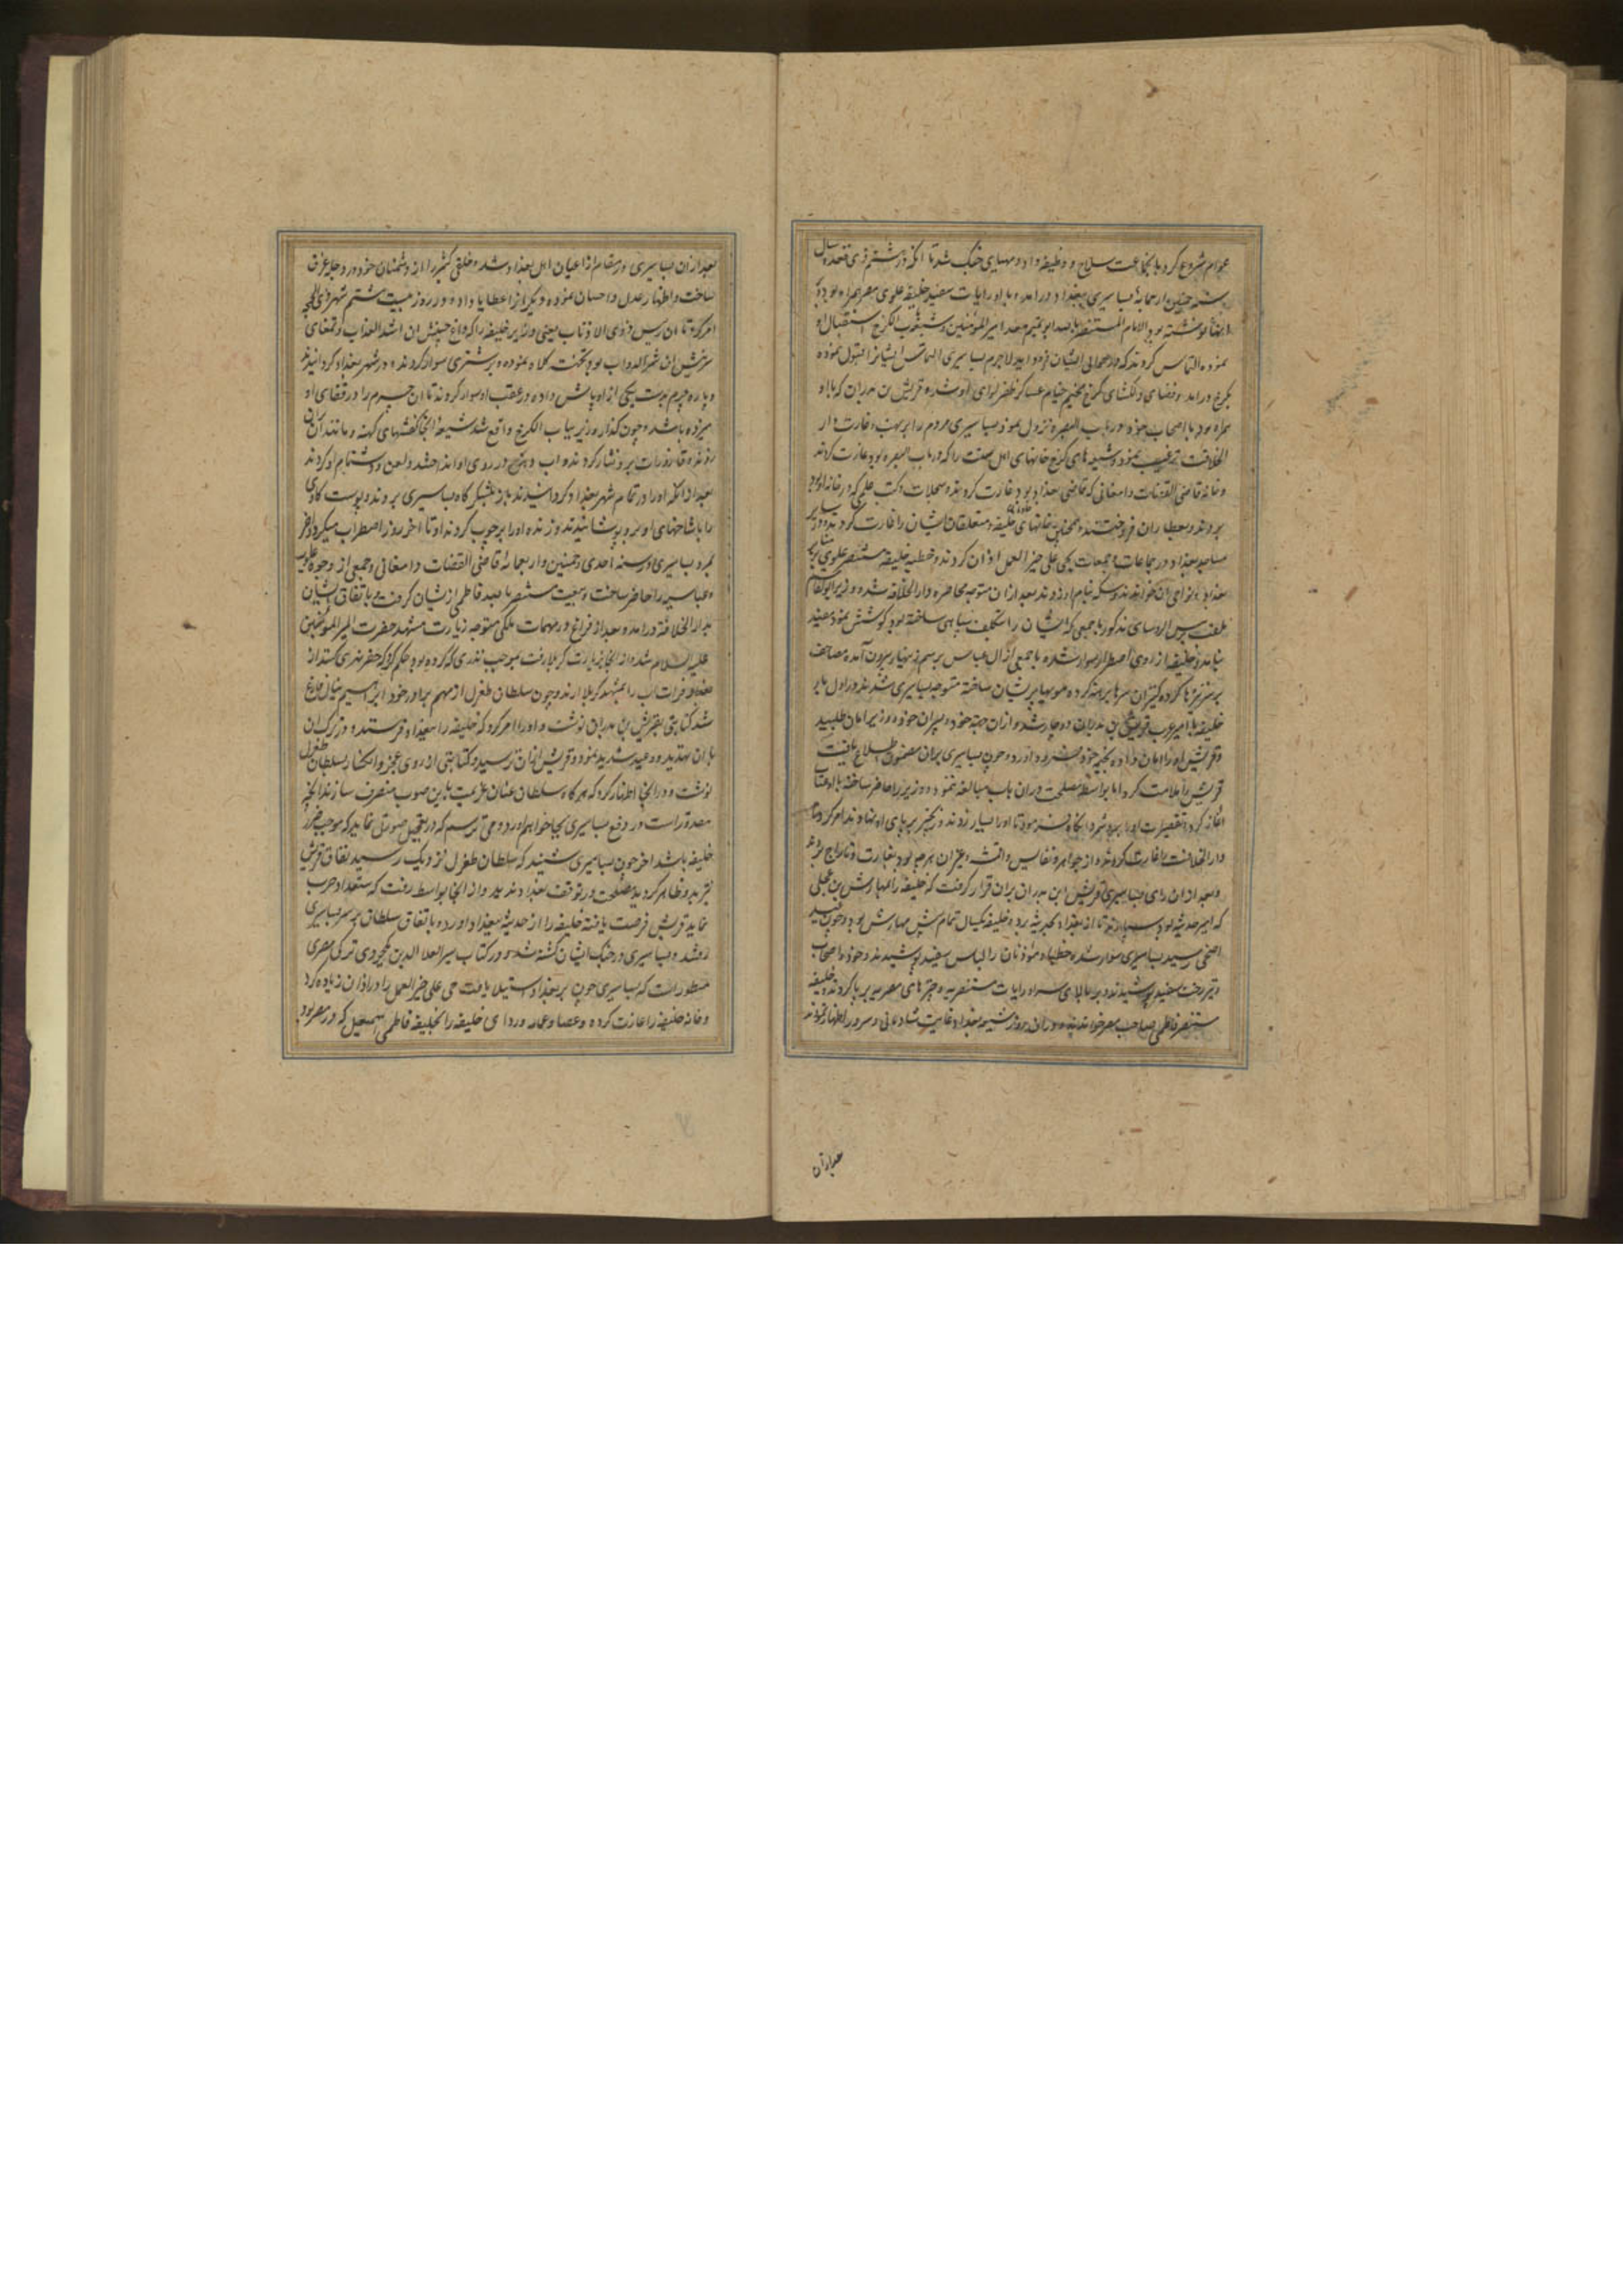 عوام شروع کرد با نجماعت سلاح و وظیفه داد و مهیای جنک شد تا آنکه در ششم ذی قعده سال
بساسیری ببغداد درامد و با او رایات سفید خلیفه علوی مصر همراه بود و بر
آنها نوشته بود الامام المستنصر بالله ابو تمیم معد امیر المؤمنین و شیعه الکرخ استقبال او
نموده التماس کردند که در حوالی ایشان فرود اید لاجرم بساسیری التماس ایشانرا قبول نموده
بکرخ درامد و فضای دلکشای کرخ مخیم خیام عساکر ظفر لوای او شد و قریش بن بدران که با او
همراه بود با اصحاب خود در باب البصره نزول نمود بساسیری مردم را بر نهب و غارت دار
الخلافت ترغیب نمود و شیعه های کرخ خانهای اهل سنت را که در باب البصره بود غارت کردند
و خانه قاضی القضات دامغانی که قاضی بغداد بود غارت کردند و سجلات و کتب علمی که در خانه او بود
بردند و بعطاران فروختند و همچنین خانهای خلیفه و متعلقان ایشان را غارت کردند و در
مساجد بغداد در جماعات و جمعات بحی علی خیر العمل اذان کردند و خطبه خلیفه مستنصر علوی بر منابر
بغداد و نواحی ان خواندند و سکه بنام او زدند بعد ازان متوجه محاصره دار الخلافه شد و وزیر ابو القاسم
ملقب برئیس الروسای مذکور با جمعی که ایشان را بتکلیف سپاهی ساخته بود کوشش نمود مفید
نیامد و خلیفه از روی اضطرار سوار شده با جمعی از ال عباس برسم زنهار بیرون آمده مصاحف
بر سر نیزها کرده کنیزان سرها برهنه کرده مویها پریشان ساخته متوجه بساسیری شدند در اول بار
خلیفه با امیر عرب قریش بن بدران دوچار شد و ازان جهة خود و پسران خود و وزیر امان طلبید
و قریش او را امان داده بخیمه خود فرود اورد و چون بساسیری بران مضمون اطلاع یافت
قریش را ملامت کرد اما بواسطه مصلحت دران باب مبالغه ننمود و وزیر را حاضر ساخته با او عتاب
اغاز کرد و تقصیرات او را برو شمرد انکاه فرمود تا او را بسیار زدند و زنجیر بر پای او نهادند و امر کرد تا
دار الخلافت را غارت کردند و از جواهر و نفایس و اقمشه و غیر ان هرچه بود بغارت و تاراج بردند
و بعد ازان رای بساسیری و قریش ابن بدران بران قرار گرفت که خلیفه را بمهارش بن مجلی
که امیر حدیثه بود بسپارند تا از بغداد بحدیثه برد و خلیفه یکسال تمام پیش مهارش بود و چون عید
اضحی رسید بساسیری سوار شده خطباء و مؤذنان را لباس سفید پوشیدند و خود و اصحاب
و نیز رخت سفید پوشیدند و بر بالای سر او رایات مستنصریه و چترهای مصریه بر پا کردند و خطبه خلیفه
مستنصر فاطمی صاحب مصر خواندند و دران روز شیعه بغداد غایت شادمانی و سرور اظهار نمودند
بعد ازان
بعد ازان بساسیری در مقام از اعیان اهل بغداد شد و خلقی کثیر را از دشمنان خود در دجله غرق
ساخت و اظهار عدل و احسان نموده دیکرانرا عطایا داد و در روز بیست و هشتم شهر ذی الحجه
امر کرد تا ان رئیس ذوی الاذناب یعنی وزیر خلیفه را که داغ جبینش ان اشد العذاب و تمغای
سرینش ان شر الدواب بود بکمند کلاه نموده بر شتری سوار کردند و در شهر بغداد کردانیدند
و پاره چرم بدست یکی از اوباش داده در عقب او سوار کردند تا ان چرم را در قفای او
میزده باشد و چون کذار وزیر بباب الکرخ واقع شد شیعه انجا کفشهای کهنه و مانند ان
و قاذورات برو نثار کردند و اب دهن در روی او انداختند و لعن و دشنام او کردند
بعد ازانکه او را در تمام شهر بغداد کردانیدند باز بلشکرکاه بساسیری بردند و پوست کاوی
را با شاخهای او برو پوشانیدند و زنده او را بر چوب کردند او تا اخر روز اضطراب میکرد و اخر
بمرد و بساسیری در سنه احدی و خمسین و اربعمائه قاضی القضات دامغانی و جمعی از وجوه علویه
و عباسیه را حاضر ساخت و بیعت مستنصر بالله فاطمی ازیشان گرفت و باتفاق ایشان
بدار الخلافة درامد و بعد از فراغ در مهمات ملکی متوجه زیارت مشهد حضرت امیر المؤمنین
علیه السلام شد و از انجا بزیارت کربلا رفت و بموجب نذری که کرده بود حکم کرد که حفر نهری کنند از
بغداد و فرات اب را بمشهد کربلا ارند و چون سلطان طغرل از مهم برادر خود ابراهیم ینال فارغ
شد کتابتی بقریش بن بدران نوشت و او را امر کرد که خلیفه را ببغداد فرستد و در ترک ان
بان تهدید و وعید شدید نمود و قریش ازان ترسید و کتابتی از روی عجز و انکسار بسلطان طغرل
نوشت و در انجا اظهار کرد که هرکاه سلطان عنان عزیمت باین صوب منصرف سازند انچه
مقدور است در دفع بساسیری بجا خواهم اورد و می ترسم که در تعجیل صورتی نماید که موجب ضرر
خلیفه باشد اخر چون بساسیری شنید که سلطان طغرل نزدیک رسید و نفاق قریش
نیز برو ظاهر کردید مصلحت در توقف بغداد ندید و از انجا بواسط رفت که استعداد حرب
نماید قریش فرصت یافته خلیفه را از حدیثه ببغداد اورد و باتفاق سلطان بر سر بساسیری
رفتند و بساسیری در جنک ایشان کشته شد و در کتاب سیر العلا الدین ترکی مصری
مسطور است که بساسیری چون بر بغداد استیلا یافت حی علی خیر العمل را در اذان زیاده کرد
و خانه خلیفه را غارت کرده و عصا و عمامه و ردای خلیفه را بخلیفه فاطمی اسمعیل که در مصر بود